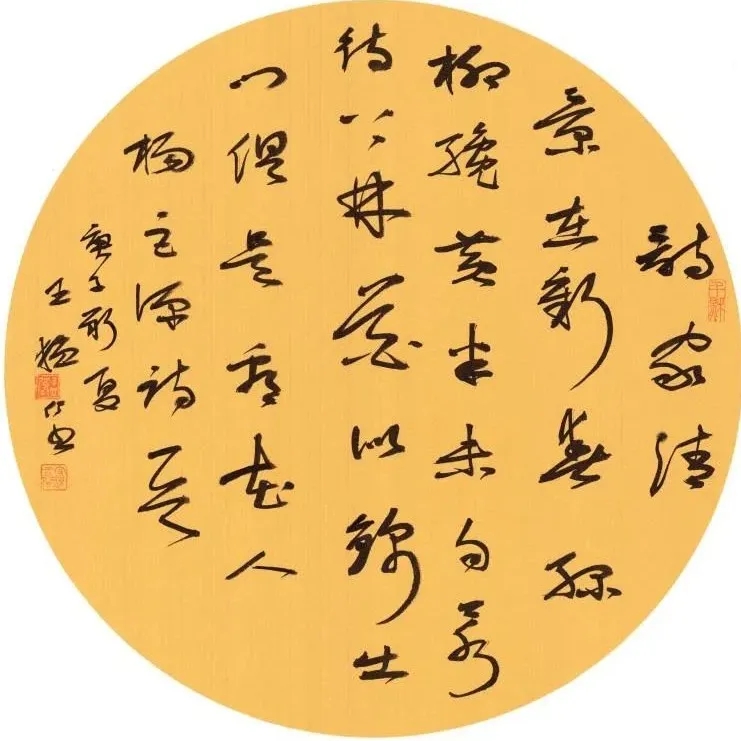 詩家清
景在新春綠
柳纔黃半未勻若
待上林花似錦出
門俱是看花人
楊巨源詩一首
庚子夏
王書